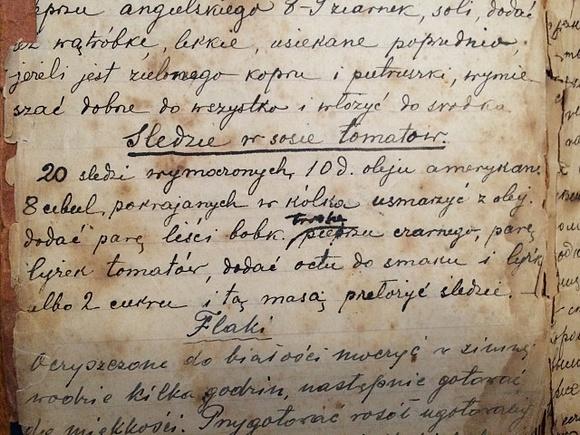 pieprzu angielskiego 8-9 ziarnek, soli, dodać
też wątróbkę, lekkie, usiekane poprzednio,
jeżeli jest zielonego kopru i pietruszki, wymie-
szać dobrze to wszystko i włożyć do środka
Śledzie w sosie tomatow.
20 śledzi wymoczonych, 10 d. oleju amerykań.
8 cebul, pokrajanych w kółka usmarzyć z olej.
dodać parę liści bobk. trochę pieprzu czarnego, parę
łyżek tomatów, dodać octu do smaku i łyżk
albo 2 cukru i tą masą przełożyć śledzie.
Flaki
Oczyszczone do białości moczyć w zimnej
wodzie kilka godzin, następnie gotować
do miękkości. Przygotować rosół ugotowany